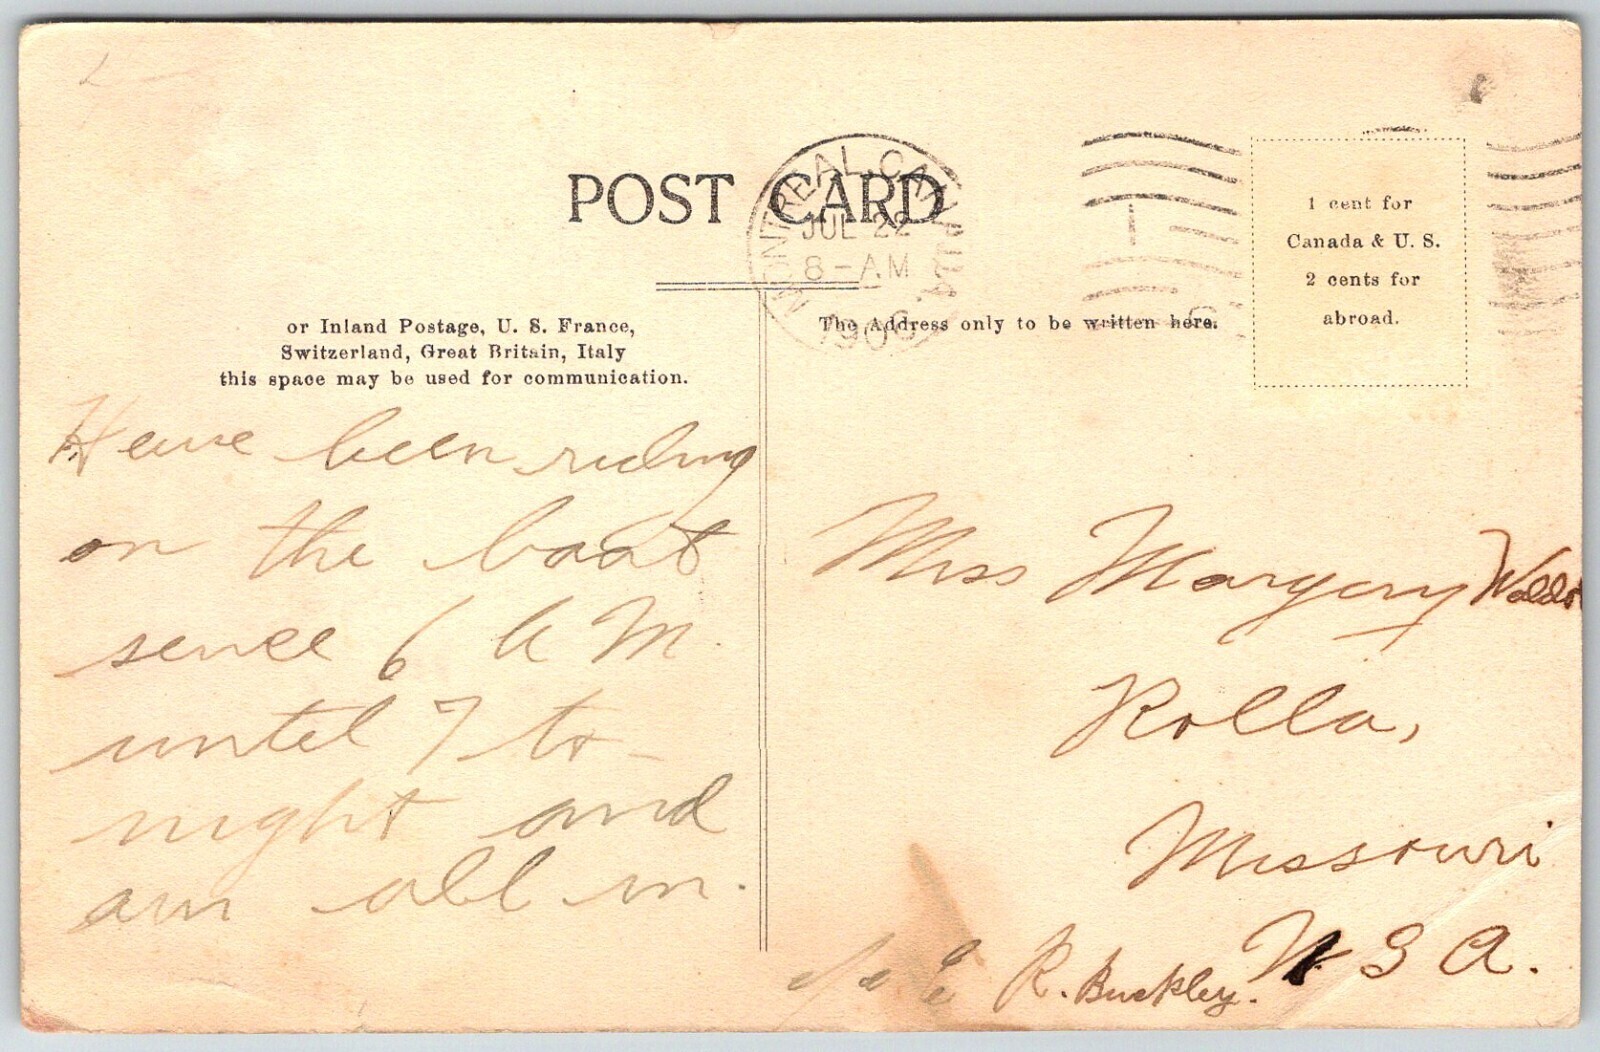 POST CARD
MONTREAL, CANADA
JUL 22
8-AM
1906
1 cent for
Canada & U. S.
2 cents for
abroad.
or Inland Postage, U. S. France,
Switzerland, Great Britain, Italy
this space may be used for communication.
The Address only to be written here.
Have been riding
on the boat
sence 6 A M.
until 7 to-
night and
am all in.
Miss Margery
Rolla,
Missouri
U S A.
c/o E R. Buckley.